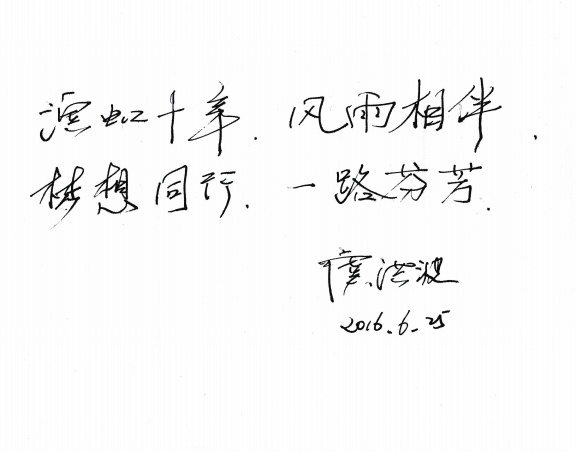 滨虹十年，风雨相伴，
梦想同行，一路芬芳。
虞洪波
2016.6.25